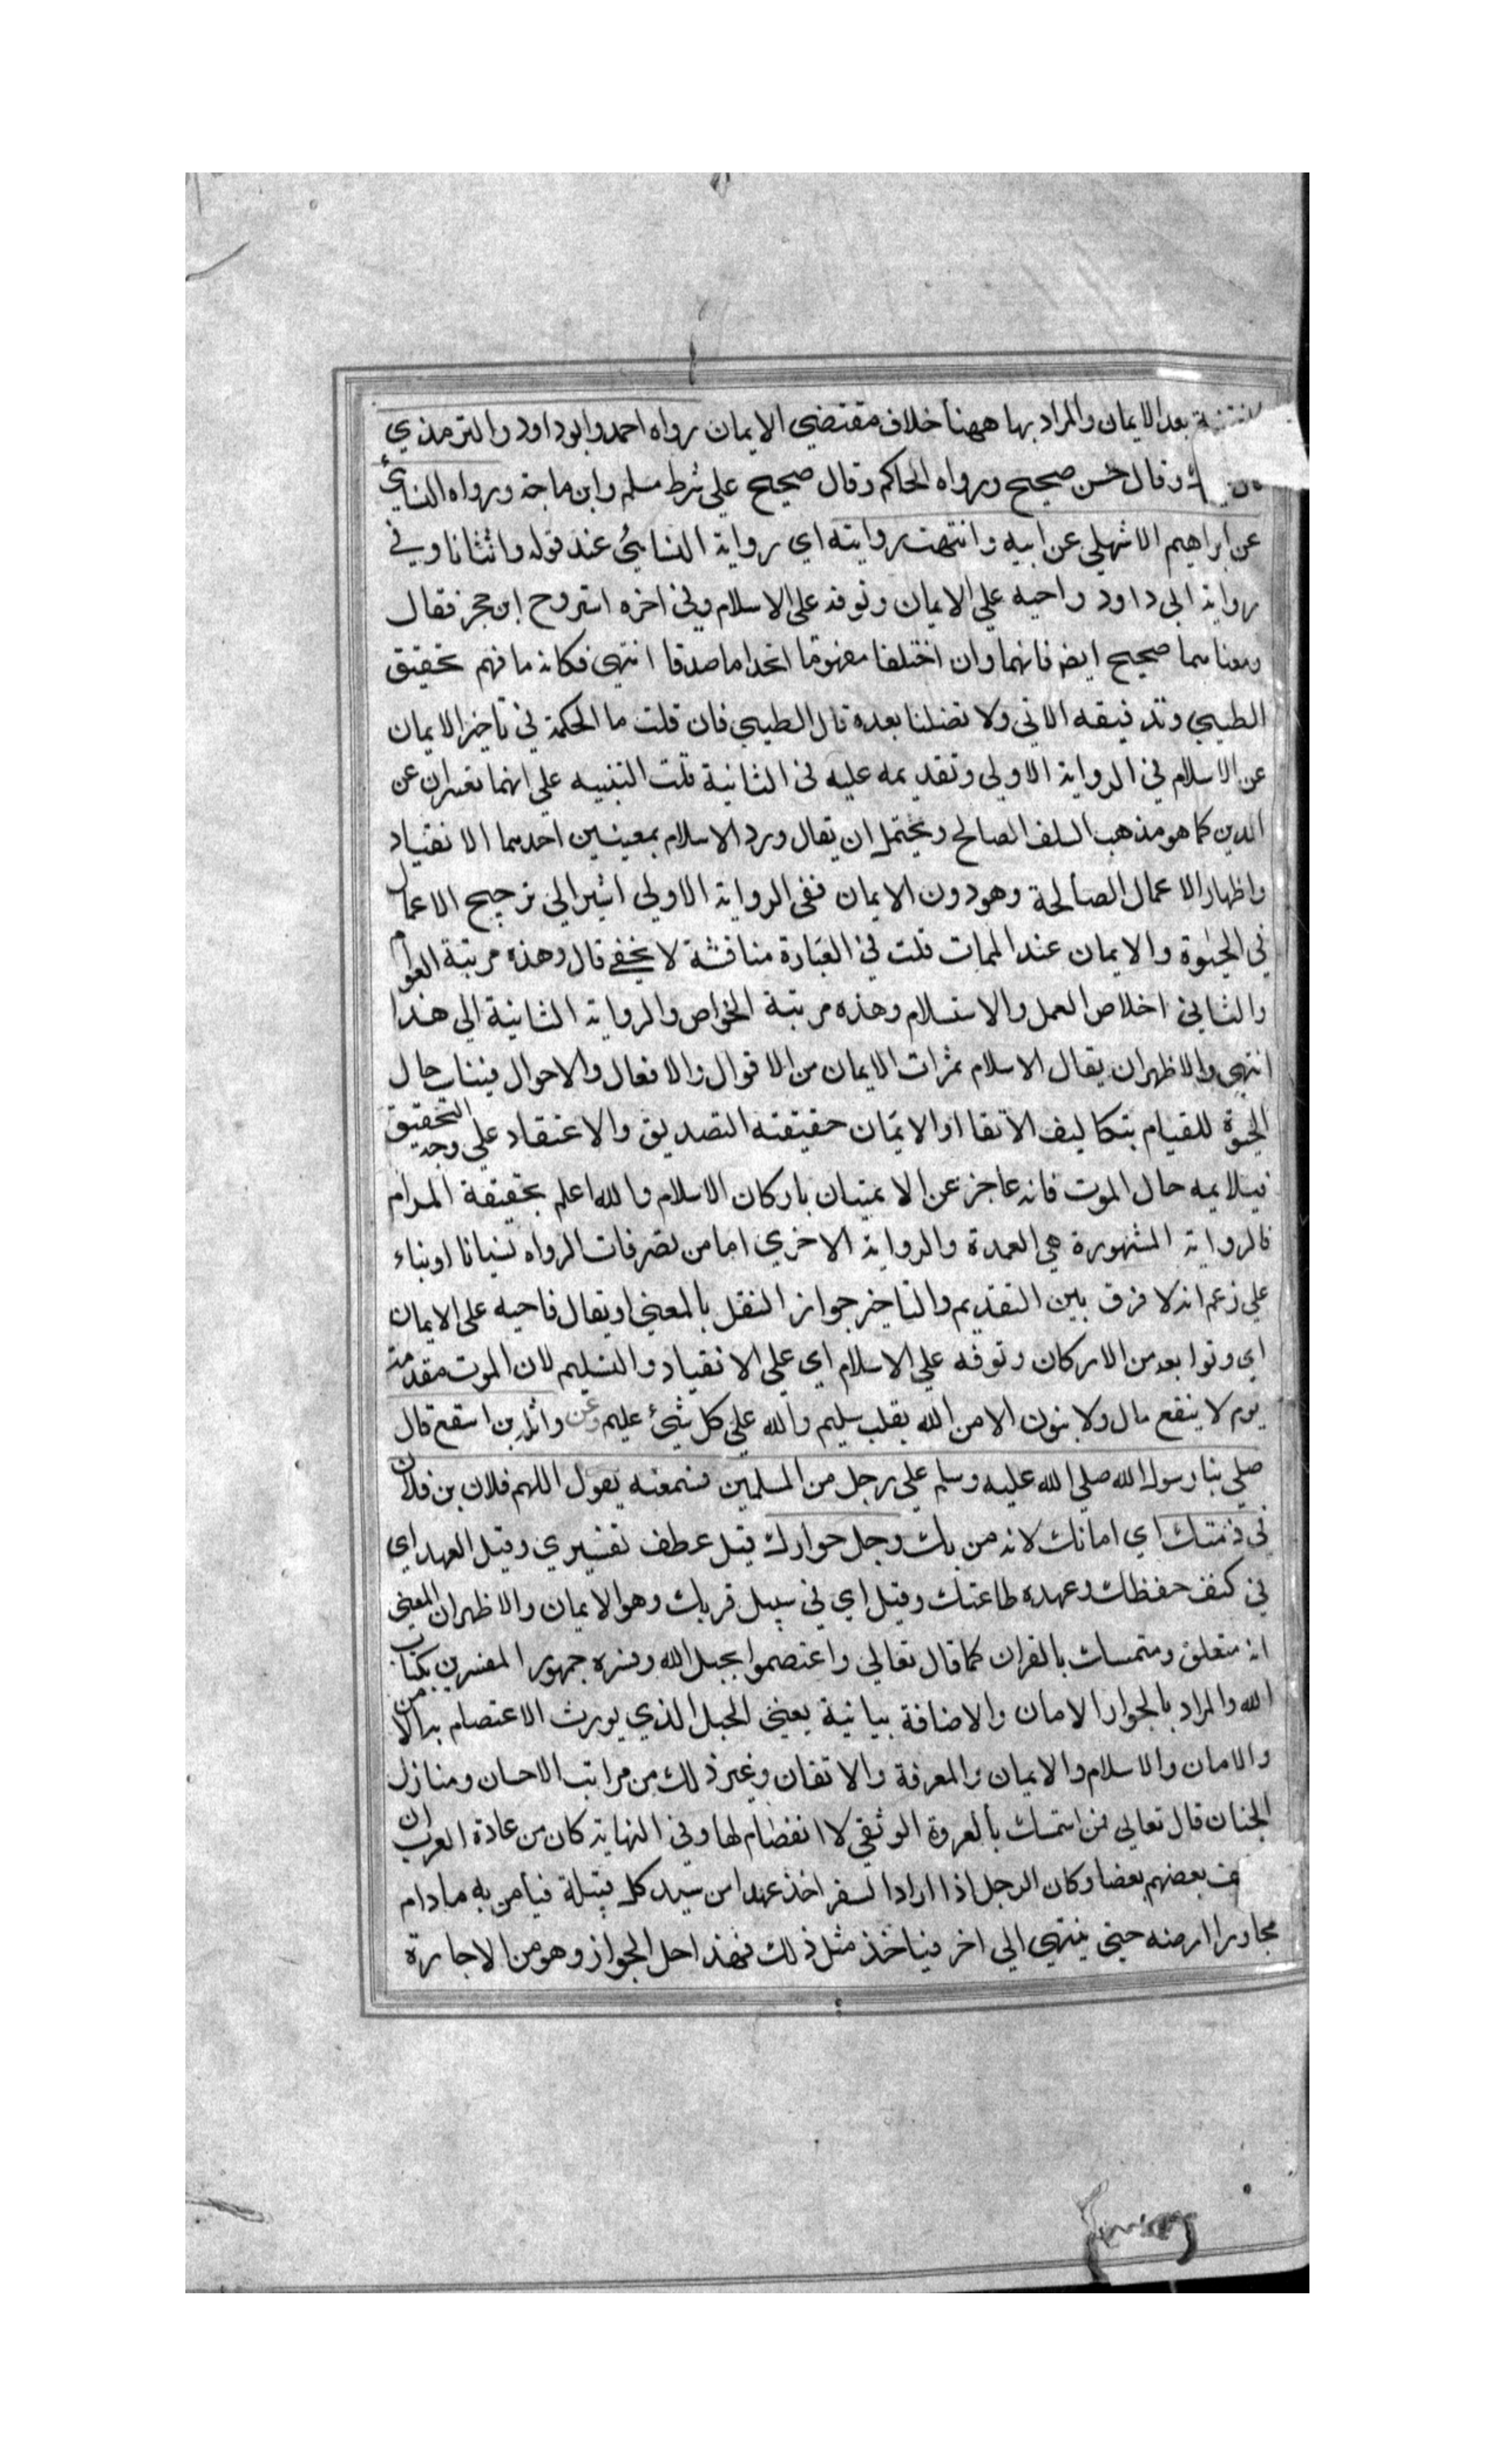 بعد الايمان والمراد بها ههنا خلاف مقتضي الايمان رواه احمد وابو داود والترمذي
وقال حسن صحيح ورواه الحاكم وقال صحيح علي شرط مسلم وابن ماجة ورواه النسائي
عن ابراهيم الاشهلي عن ابيه وانتهت روايته اي رواية النسائي عند قوله وانثانا وفي
رواية ابي داود واحيه علي الايمان وتوفه على الاسلام وفي اخره استروح ابن حجر فقال
ومعناهما صحيح ايضا فانهما وان اختلفا مفهوما اتحدا ماصدقا انتهى فكانه ما فهم تحقيق
الطيبي وتدقيقه الاتي ولا تضلنا بعده قال الطيبي فان قلت ما الحكمة في تاخير الايمان
عن الاسلام في الرواية الاولي وتقديمه عليه في الثانية قلت التنبيه علي انهما تعبران عن
الدين كما هو مذهب السلف الصالح ويحتمل ان يقال ورد الاسلام بمعنيين احدهما الانقياد
واظهار الاعمال الصالحة وهو دون الايمان ففى الرواية الاولي اشير الي ترجيح الاعمال
في الحيوة والايمان عند الممات قلت في العبارة مناقشة لا يخفى قال وهذه مرتبة العوام
والثاني اخلاص العمل والاستسلام وهذه مرتبة الخواص والرواية الثانية الي هذا
انتهى والاظهر ان يقال الاسلام ثمرات الايمان من الاقوال والافعال والاحوال فيناسب حال
الحيوة للقيام بتكاليف الاتقا او الايمان حقيقته التصديق والاعتقاد علي وجه التحقيق
فيلايمه حال الموت فانه عاجز عن الاتيان باركان الاسلام والله اعلم بحقيقة المرام
فالرواية المشهورة هي العمدة والرواية الاخري اما من تصرفات الرواه نسيانا او بناء
علي زعم انه لا فرق بين التقديم والتاخير جواز النقل بالمعنى او يقال فاحيه على الايمان
اي وتوابعه من الاركان وتوفه علي الاسلام اي علي الانقياد والتسليم لان الموت مقدمة
يوم لا ينفع مال ولا بنون الا من الله بقلب سليم والله علي كل شيء عليم وعن واثلة بن اسقع قال
صلي بنا رسول الله صلي الله عليه وسلم علي رجل من المسلمين فسمعته يقول اللهم فلان بن فلان
في ذمتك اي امانك لانه من بك وجل جوارك قيل عطف تفسيري وقيل العهد اي
في كنف حفظك وعهده طاعتك وقيل اي في سبيل قربك وهو الايمان والاظهر ان المعنى
انه متعلق ومتمسك بالقران كما قال تعالي واعتصموا بحبل الله وفسره جمهور المفسرين بكتاب
الله والمراد بالجوار الامان والاضافة بيانية يعني الحبل الذي يورث الاعتصام به الامن
والامان والاسلام والايمان والمعرفة والاتقان وغير ذلك من مراتب الاحسان ومنازل
الجنان قال تعالي فمن استمسك بالعروة الوثقي لا انفصام لها وفي النهاية كان من عادة العرب ان
بعضهم بعضا وكان الرجل اذا اراد السفر اخذ عهدا من سيد كل قبيلة فيأمن به مادام
مجاورا ارضه حتى ينتهي الي اخر فياخذ مثل ذلك فهذا حل الجوار وهو من الاجارة